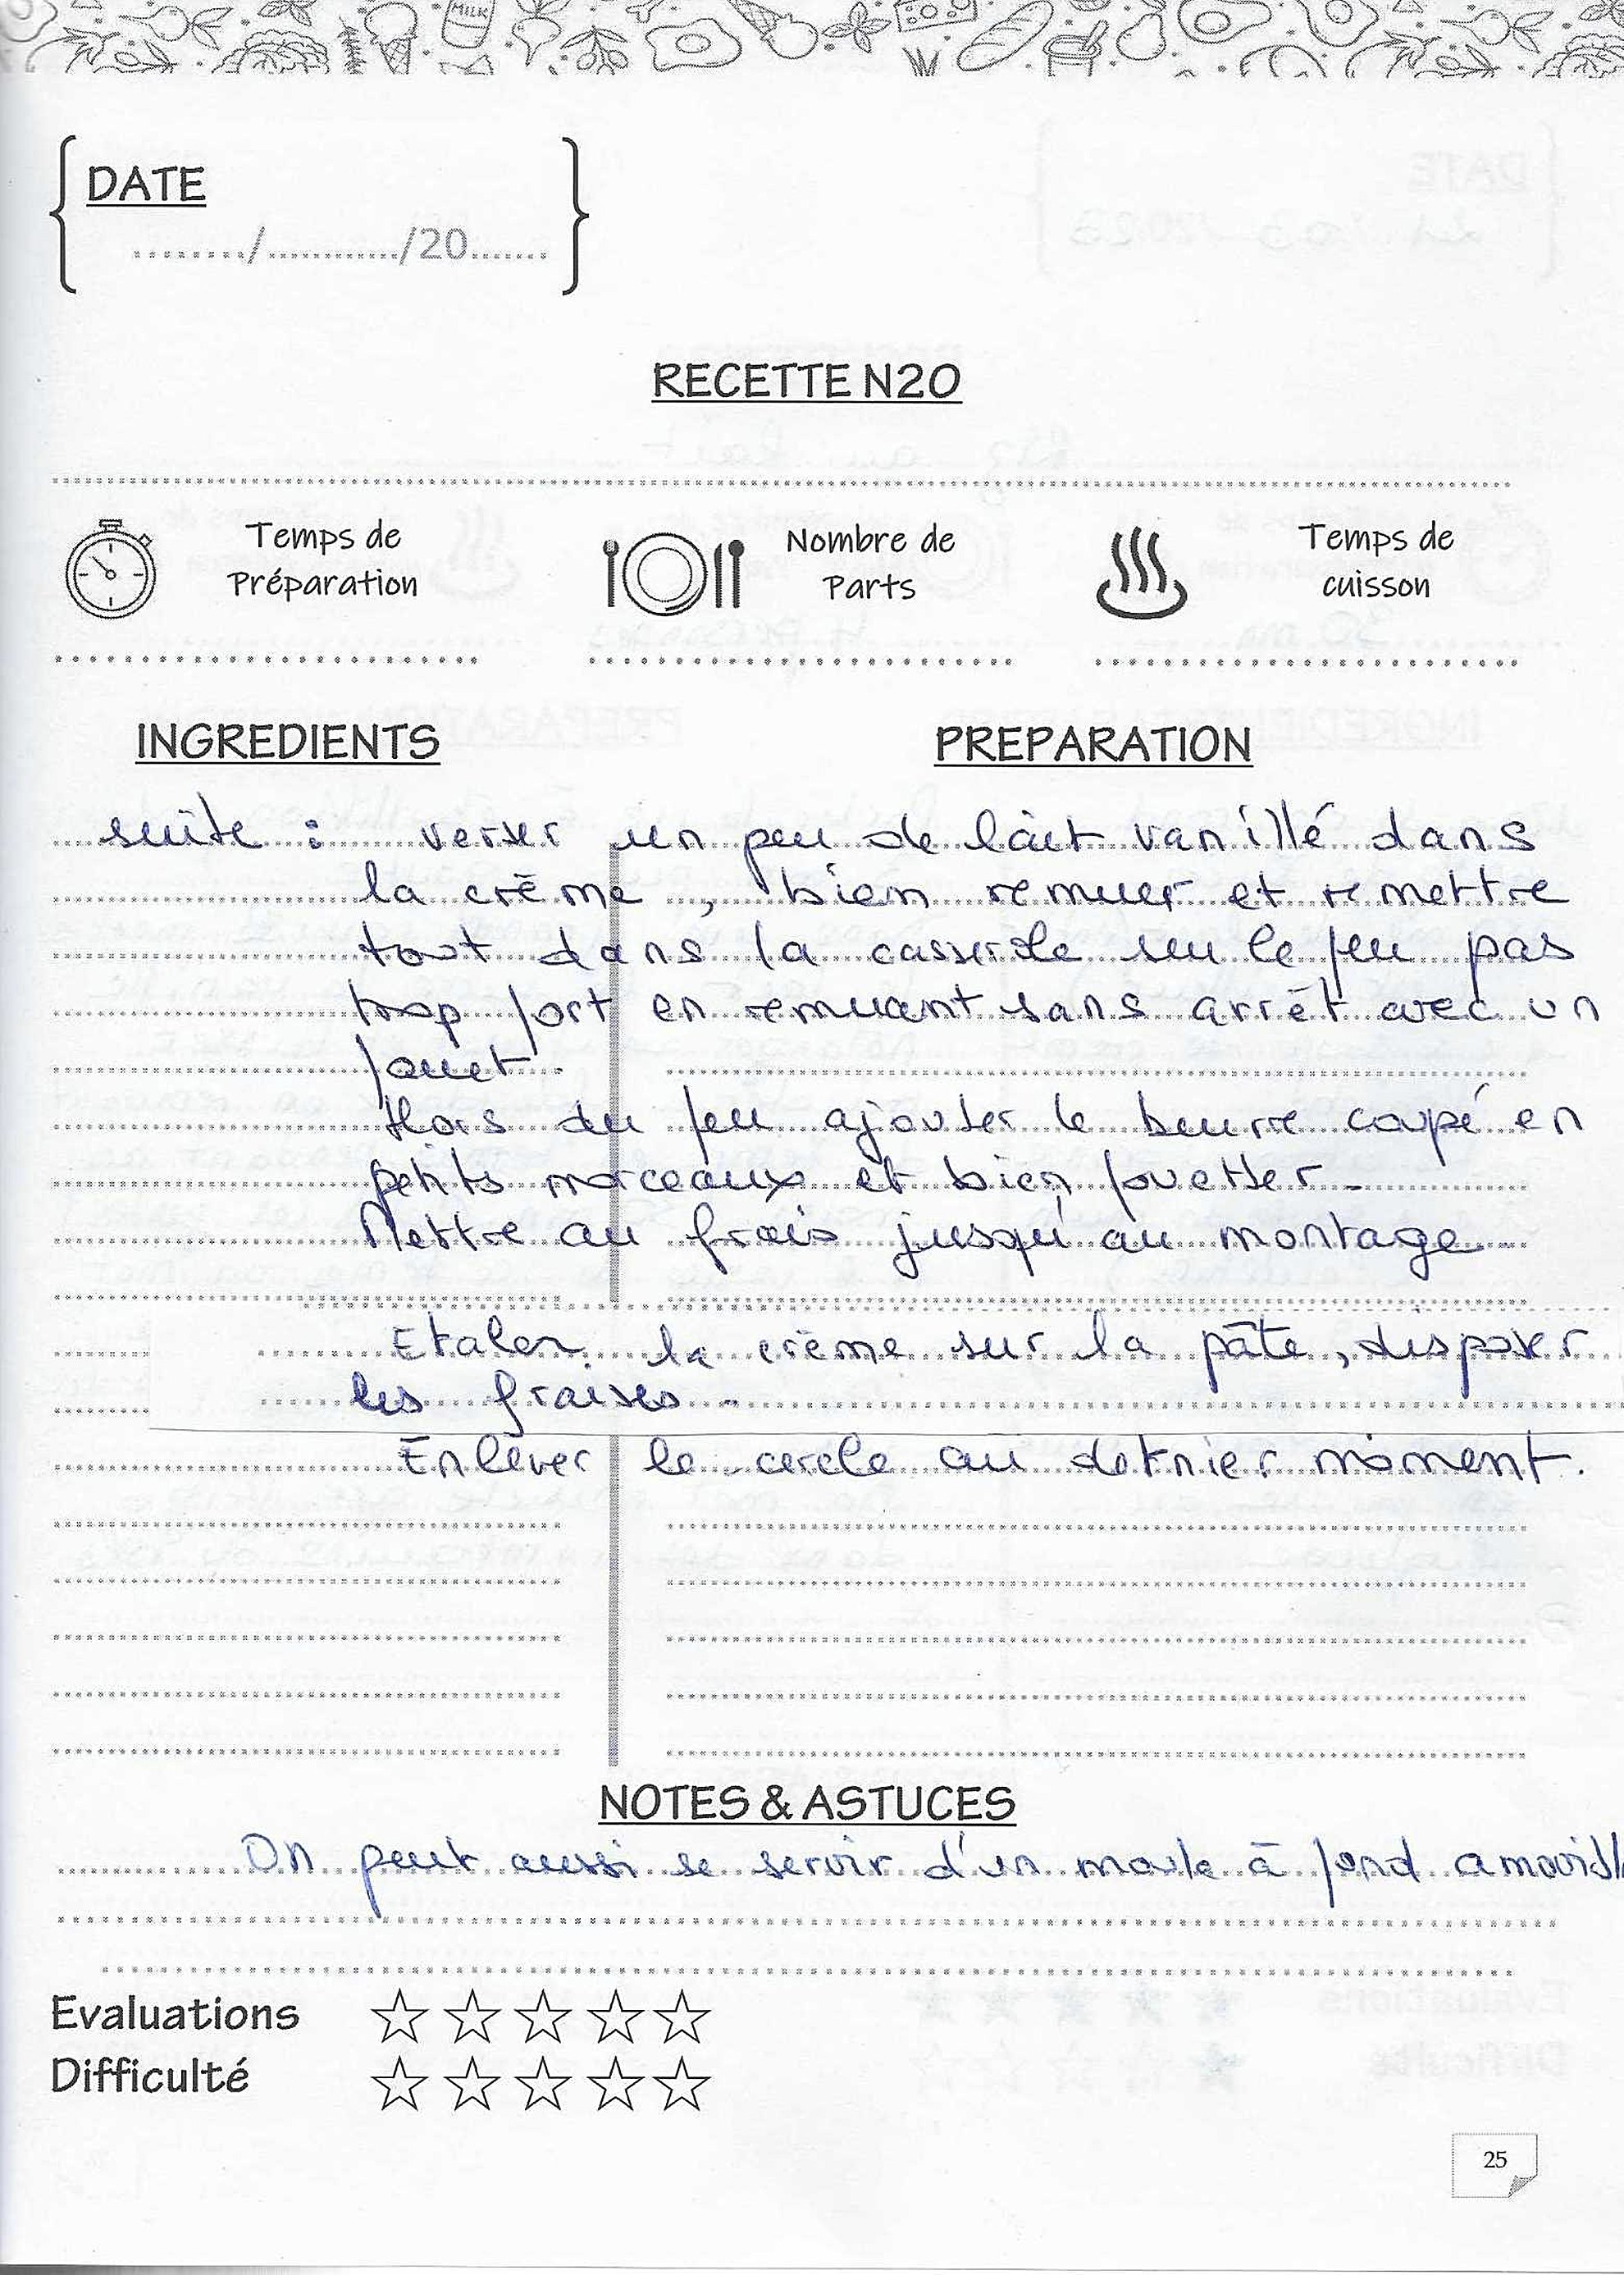 MILK
DATE
......../............/20.......
RECETTE N20
Temps de Préparation
Nombre de Parts
Temps de cuisson
INGREDIENTS
PREPARATION
suite : verser un peu de lait vanillé dans
la crème, bien remuer et remettre
tout dans la casserole sur le feu pas
trop fort en remuant sans arrêt avec un
fouet.
Hors du feu ajouter le beurre coupé en
petits morceaux et bien fouetter.
Mettre au frais jusqu'au montage.
Etaler la crème sur la pâte, disposer
les fraises.
Enlever le cercle au dernier moment.
NOTES & ASTUCES
On peut aussi se servir d'un moule à fond amovible
Evaluations
Difficulté
25